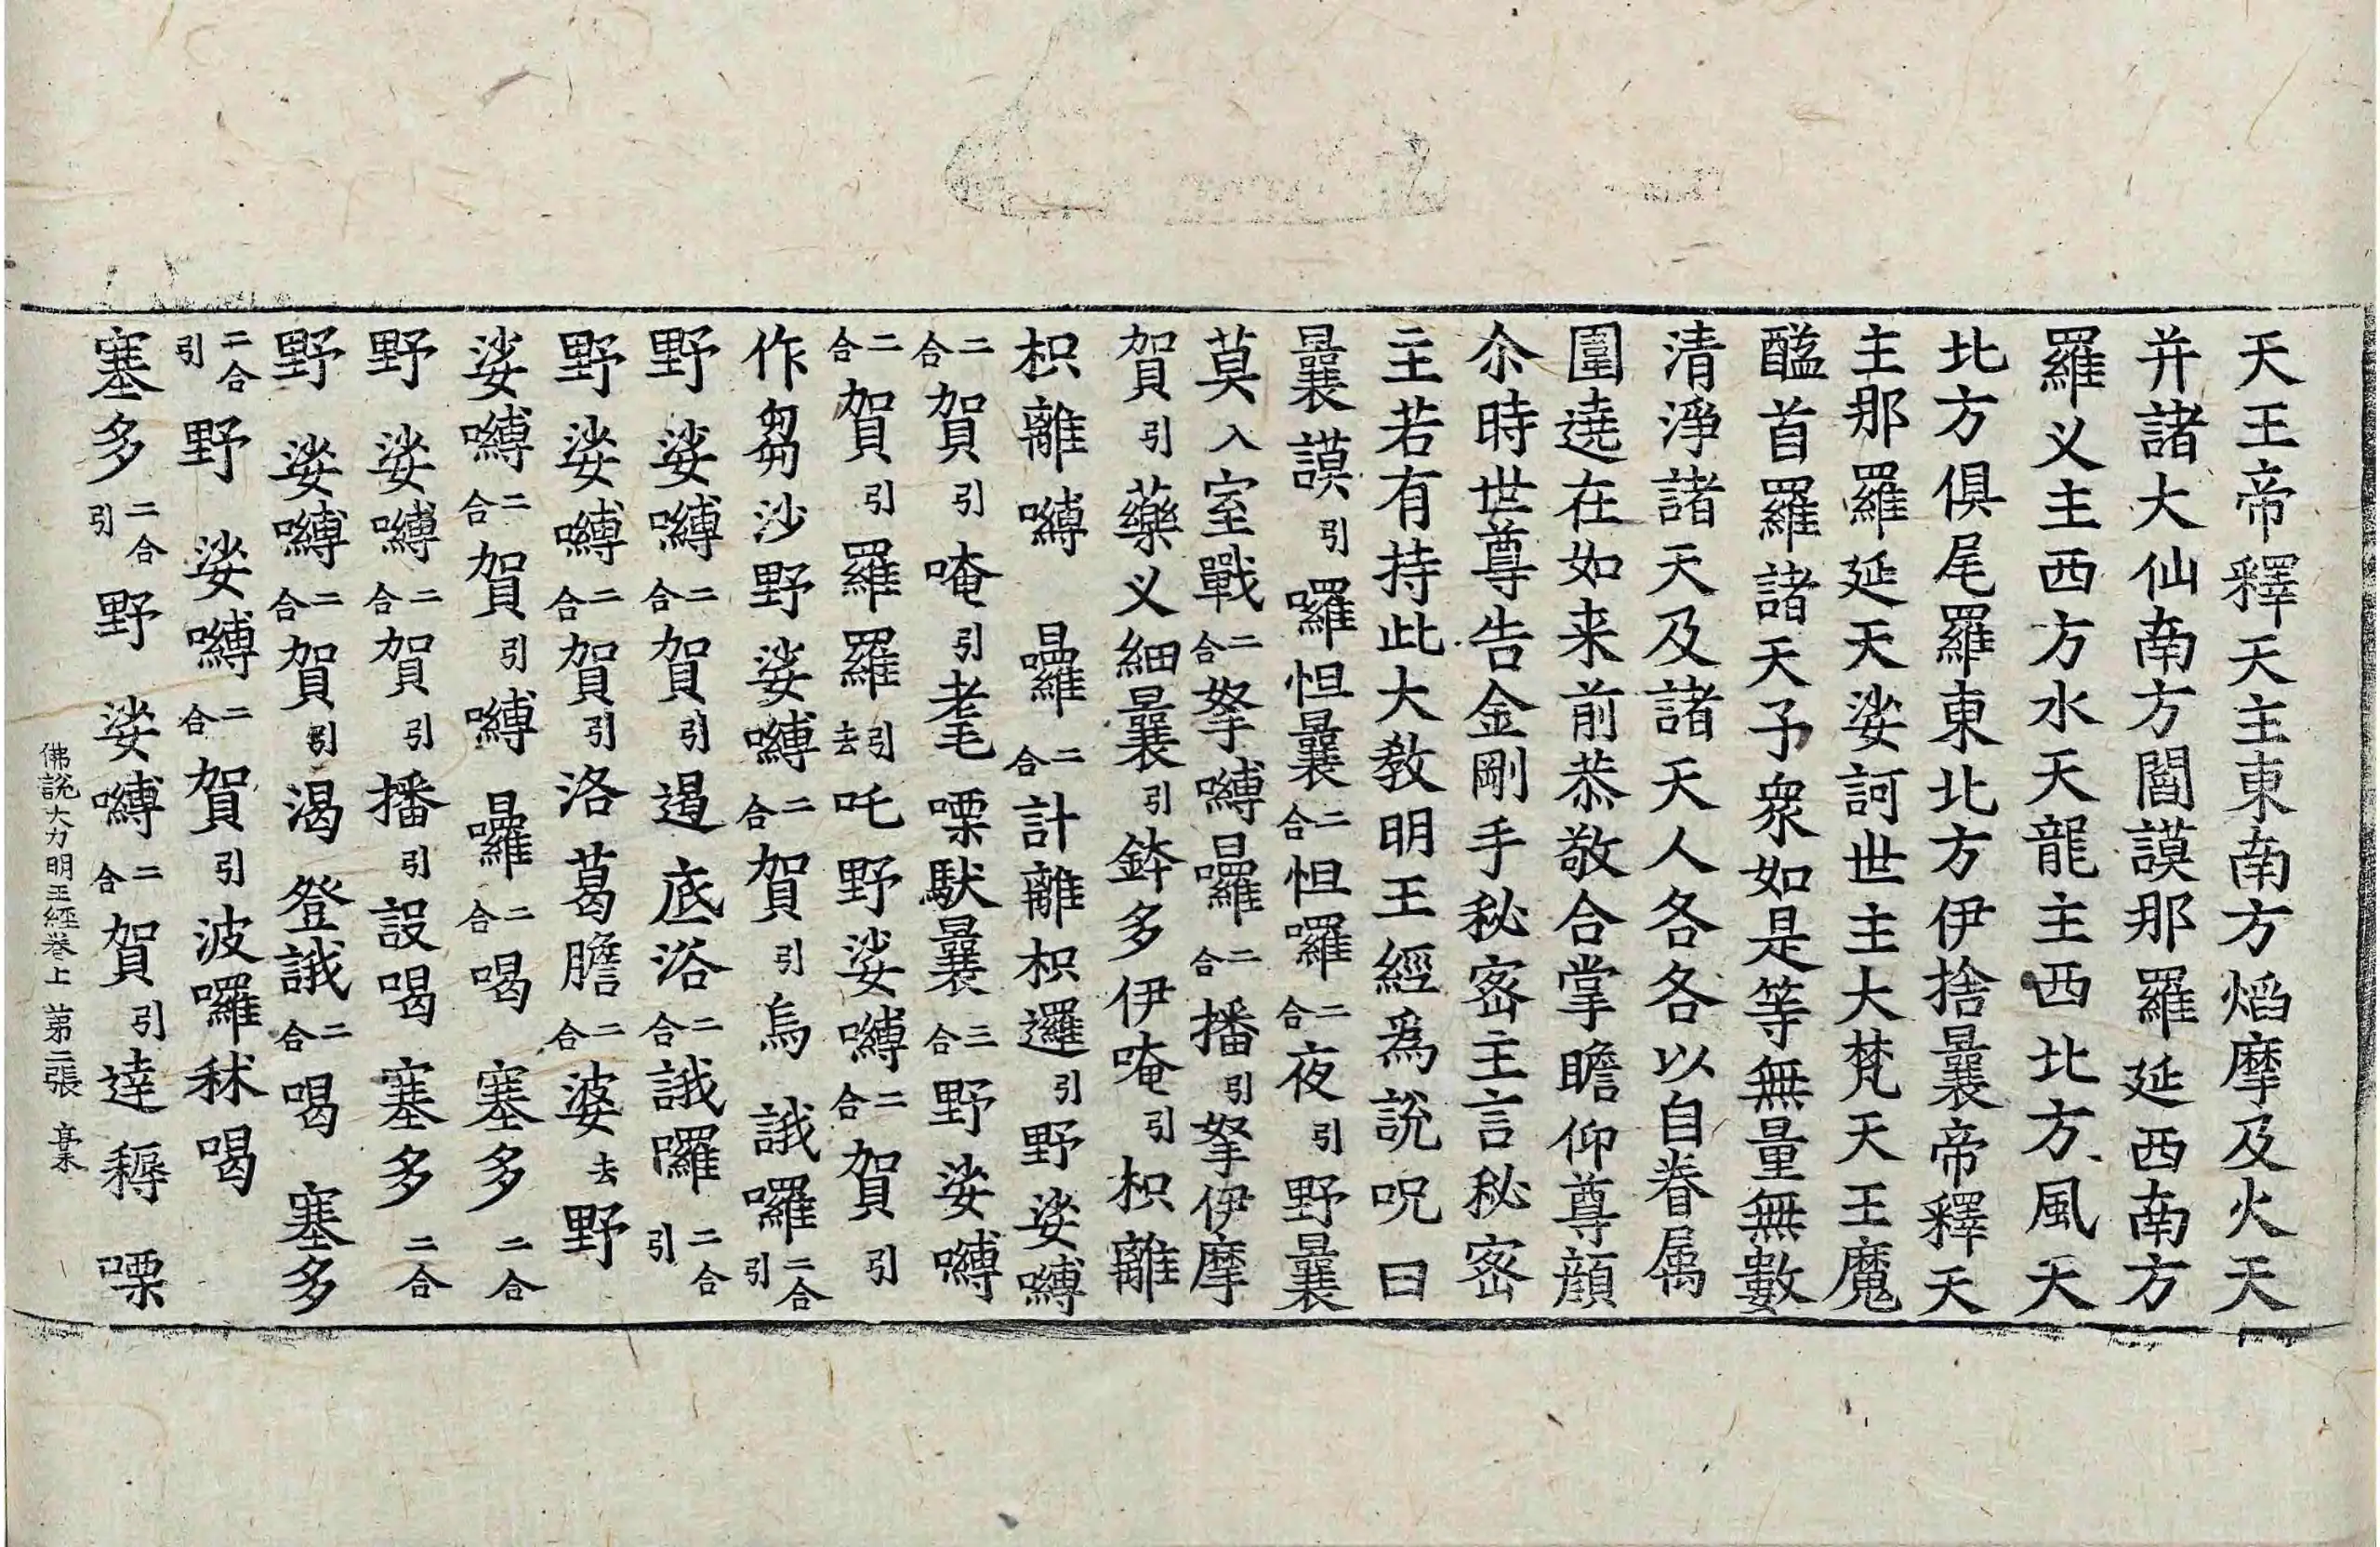 天王帝釋天主東南方熖摩及火天
并諸大仙南方閻謨那羅延西南方
羅义主西方水天龍主西北方風天
北方俱尾羅東北方伊捨曩帝釋天
主那羅延天娑訶世主大梵天王魔
醯首羅諸天子衆如是等無量無數
清淨諸天及諸天人各各以自眷属
圍遶在如来前恭敬合掌瞻仰尊顔
尒時世尊告金剛手秘密主言秘密
主若有持此大教明王經爲說呪曰
曩謨引囉怛曩二合怛囉二合夜引野曩
莫入室戰二合拏嚩囉二合播引拏伊摩
賀引藥义細曩引鉢多伊唵引枳離
枳離嚩囉二合計離枳邏引野娑嚩
二合賀引唵引耄㗚馱曩三合野娑嚩
二合賀引羅羅引去吒野娑嚩二合賀引
作芻沙野娑嚩二合賀引烏誐囉二合引
野娑嚩二合賀引遏底浴二合誐囉二合引
野娑嚩二合賀引洛葛膽二合婆去野
娑嚩二合賀引嚩囉二合喝塞多二合
野娑嚩二合賀引播引設喝塞多二合
野娑嚩二合賀引渴登誐二合喝塞多
二合引野娑嚩二合賀引波囉秫喝
塞多二合引野娑嚩二合賀引達㮏㗚
佛說大力明王經卷上 苐二張 槀